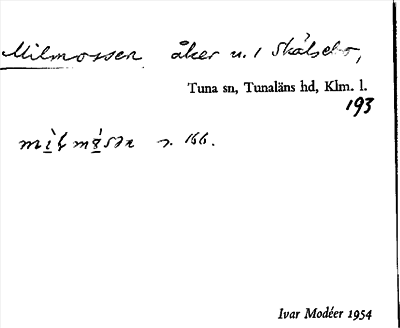 Milmossen åker u. 1 Skälsebo,
Tuna sn, Tunaläns hd, Klm. l.
193
s. 166.
Ivar Modéer 1954